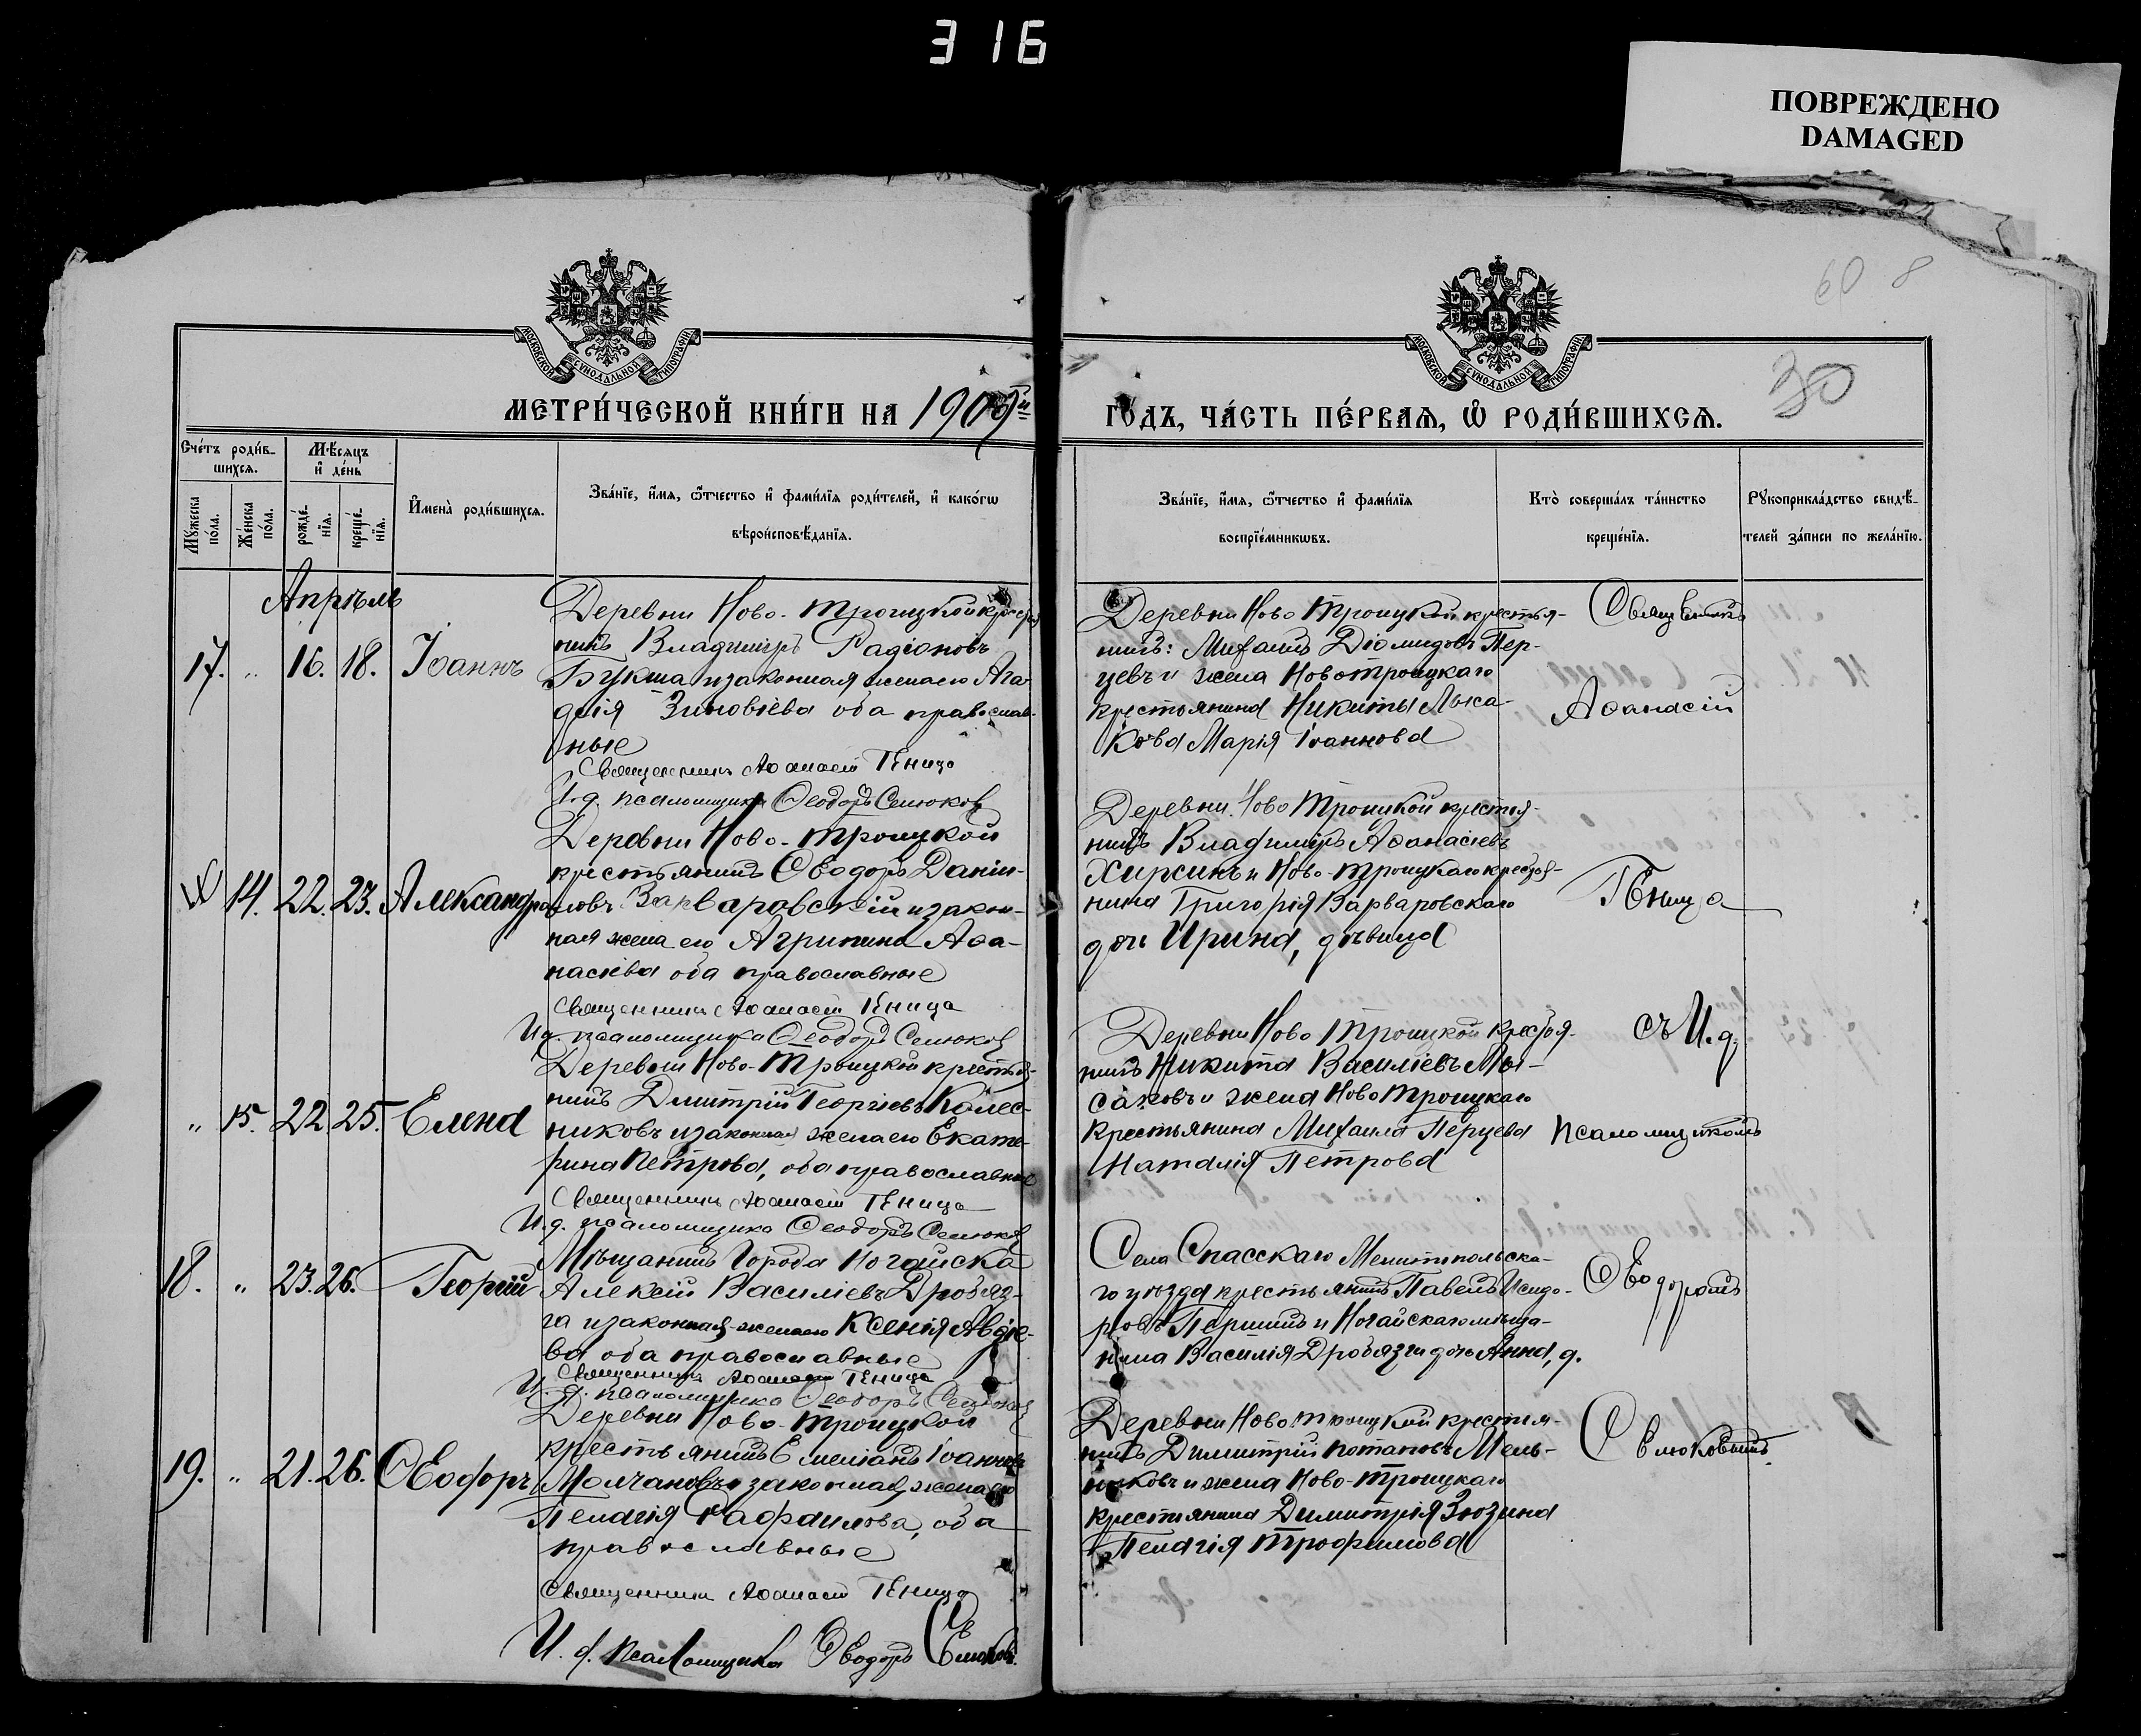 316
ПОВРЕЖДЕНО
DAMAGED
60 8
30
МОСКОВСКОЙ СѴНОДАЛЬНОЙ ТИПОГРАФІИ
МОСКОВСКОЙ СѴНОДАЛЬНОЙ ТИПОГРАФІИ
МЕТРИ́ЧЕСКОЙ КНИ́ГИ НА 1909й
ГО́ДЪ, ЧА́СТЬ ПЕ́РВАЯ, Ѽ РОДИ́ВШИХСЯ.
Сче́тъ роди́в-
шихся.
Мѣ́сяцъ
и҆ де́нь
Мꙋ́жеска
по́ла.
Же́нска
по́ла.
рожде́-
нїя.
креще́-
нїя.
И҆мена̀ роди́вшихся.
Зва́нїе, и҆́мя, ѻ҆́тчество и҆ фами́лїя роди́телей, и҆ како́гѡ
вѣроисповѣ́данїя.
Зва́нїе, и҆́мя, ѻ҆́тчество и҆ фами́лїя
воспрїе́мникѡвъ.
Кто̀ соверша́лъ та́инство
креще́нїя.
Рꙋкоприкла́дство свидѣ́-
телей за́писи по жела́нїю.
Апрѣль
17. „ 16. 18. Іоаннъ
Деревни Ново-Троицкой крестья
нинъ Владиміръ Радіоновъ
Букша и законная жена его Ага
фія Зиновіева оба православ-
ные
Священникъ Аѳанасій Гѣница
И.д. псаломщика Ѳеодоръ Селюковъ
Деревни Ново Троицкой крестья-
нинъ: Михаилъ Діомидовъ Пер-
цевъ и жена Новотроицкаго
крестьянина Никиты Лыса-
кова Марія Іоаннова
Священникъ
Аѳанасій
14. 22. 23. Александра
Деревни Ново-Троицкой
крестьянинъ Ѳеодоръ Даніи-
ловъ Варваровскій и закон-
ная жена его Агрипина Аѳа-
насіева оба православные
Священникъ Аѳанасій Гѣница
И.д. псаломщика Ѳеодоръ Селюковъ
Деревни Ново Троицкой крестья-
нинъ Владиміръ Аѳанасіевъ
и Ново-Троицкаго крестья-
нина Григорія Варваровскаго
дочь Ирина, дѣвица
Гѣница
„ 15. 22. 25. Елена
Деревни Ново-Троицкой крестья-
нинъ Дмитрій Георгіевъ Колес-
никовъ и законная жена его Екате-
рина Петрова, оба православные
Священникъ Аѳанасій Гѣница
И.д. псаломщика Ѳеодоръ Селюковъ
Деревни Ново Троицкой крестья-
нинъ Никита Василіевъ Лы-
саковъ и жена Ново Троицкаго
крестьянина Михаила Перцева
Наталія Петрова
съ И.д.
псаломщикомъ
18. „ 23. 26. Георгій
Мѣщанинъ города Ногайска
Алексій Василіевъ Дробяз-
га и законная жена его Ксенія Авдіе-
ва оба православные
Священникъ Аѳанасій Гѣница
И.д. псаломщика Ѳеодоръ Селюковъ
Села Спасскаго Мелитопольска-
го уѣзда крестьянинъ Павелъ Исидо-
ровъ Першинъ и Ногайскаго мѣща-
нина Василія Дробязги дочь Анна, д.
Ѳеодоромъ
19. „ 21. 26. Ѳеодоръ
Деревни Ново-Троицкой
крестьянинъ Емеліанъ Іоанновъ
Молчановъ и законная жена его
Пелагія Рафаилова, оба
православные
Священникъ Аѳанасій Гѣница
И.д. псаломщика Ѳеодоръ Селюковъ.
Деревни Ново Троицкой крестья-
нинъ Димитрій Потаповъ Мель-
никовъ и жена Ново-Троицкаго
крестьянина Димитрія Зюзина
Пелагія Трофимова
Селюковымъ.